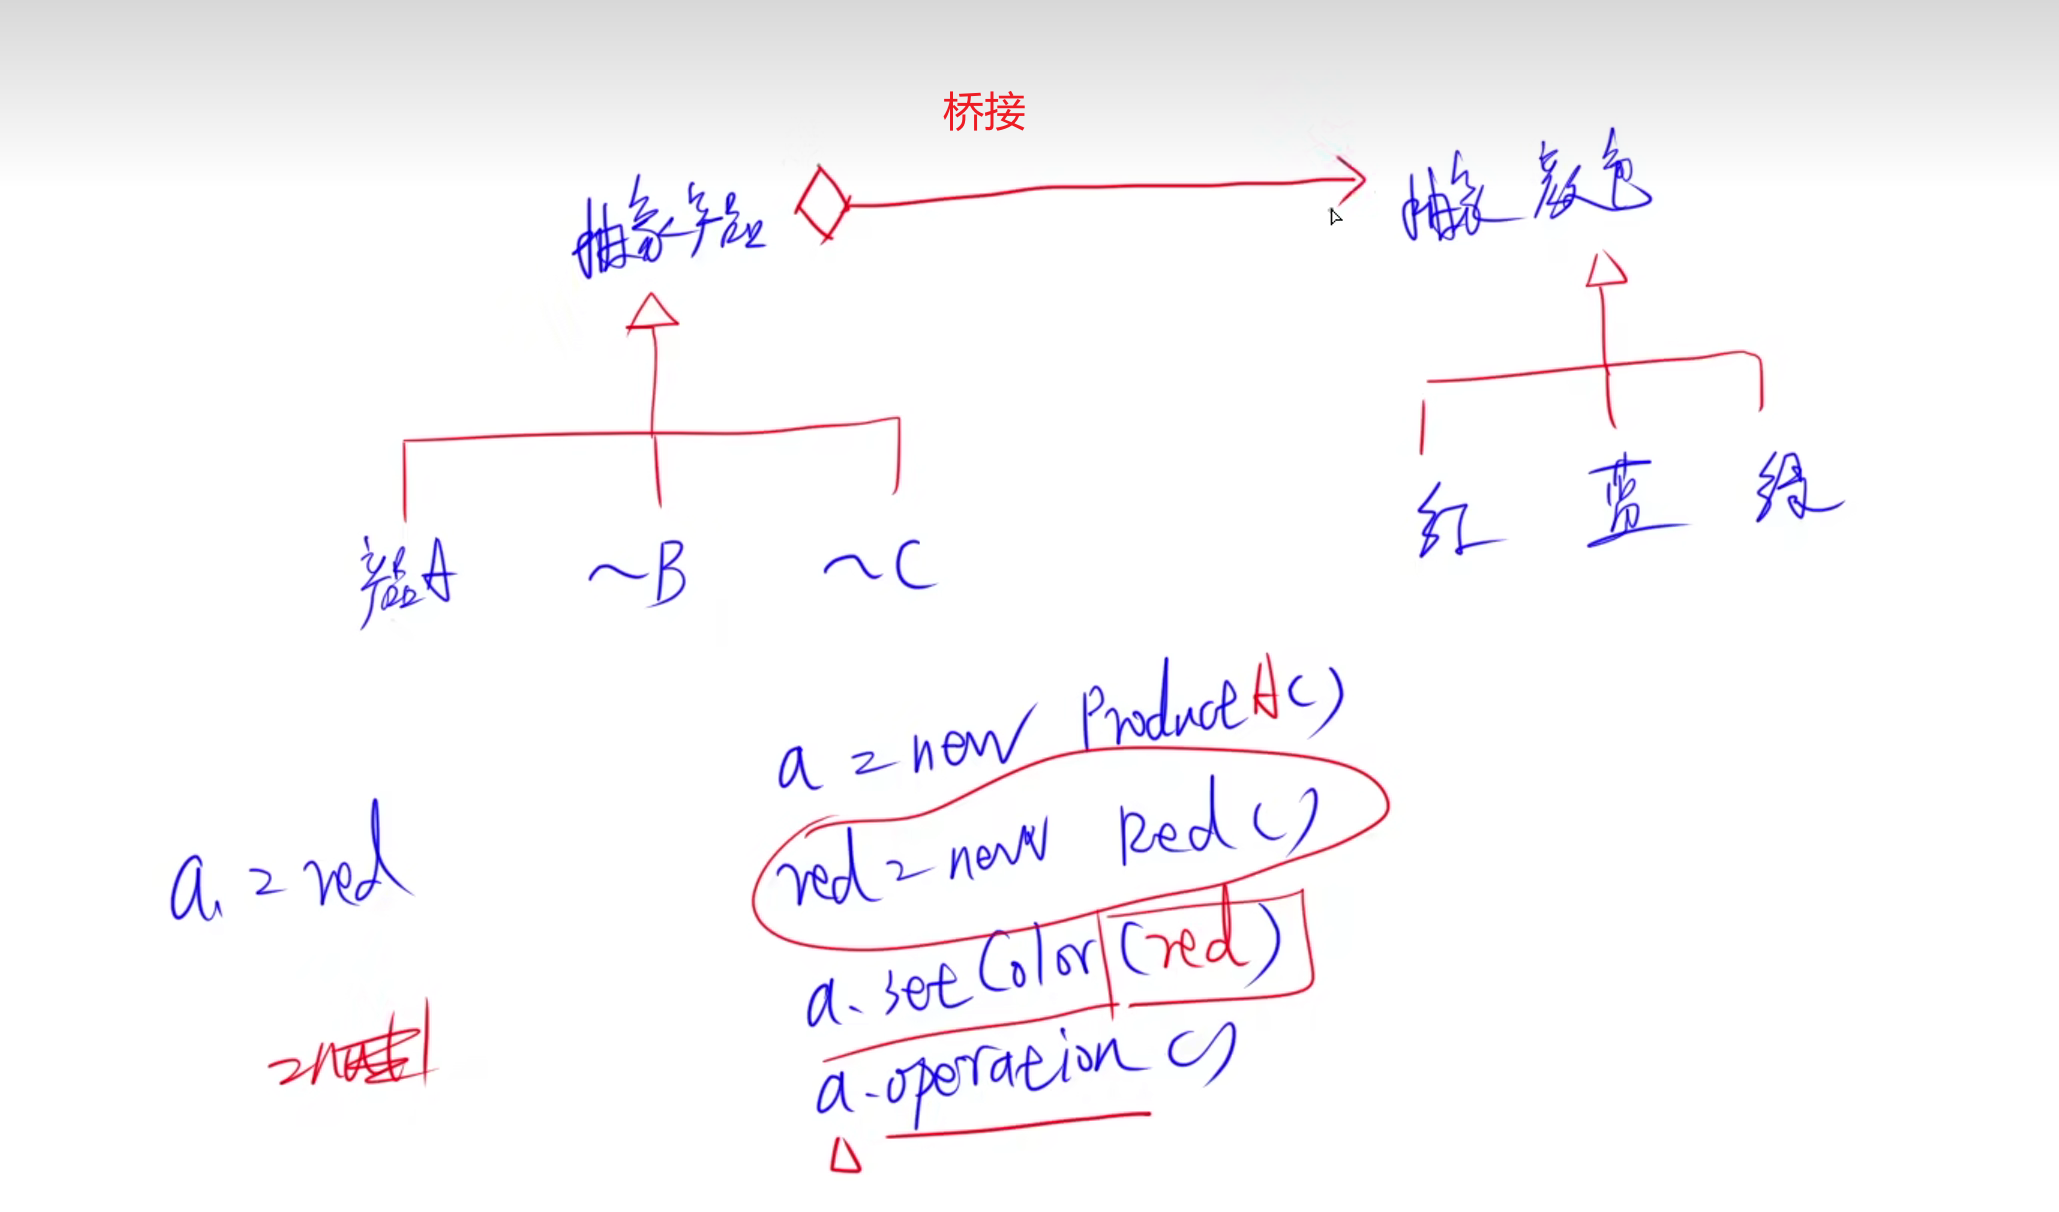 桥接
抽象产品 抽象颜色
产品A ~B ~C 红 蓝 绿
a = new ProductA()
red = new Red()
a = red
a.setColor(red)
a.operation()